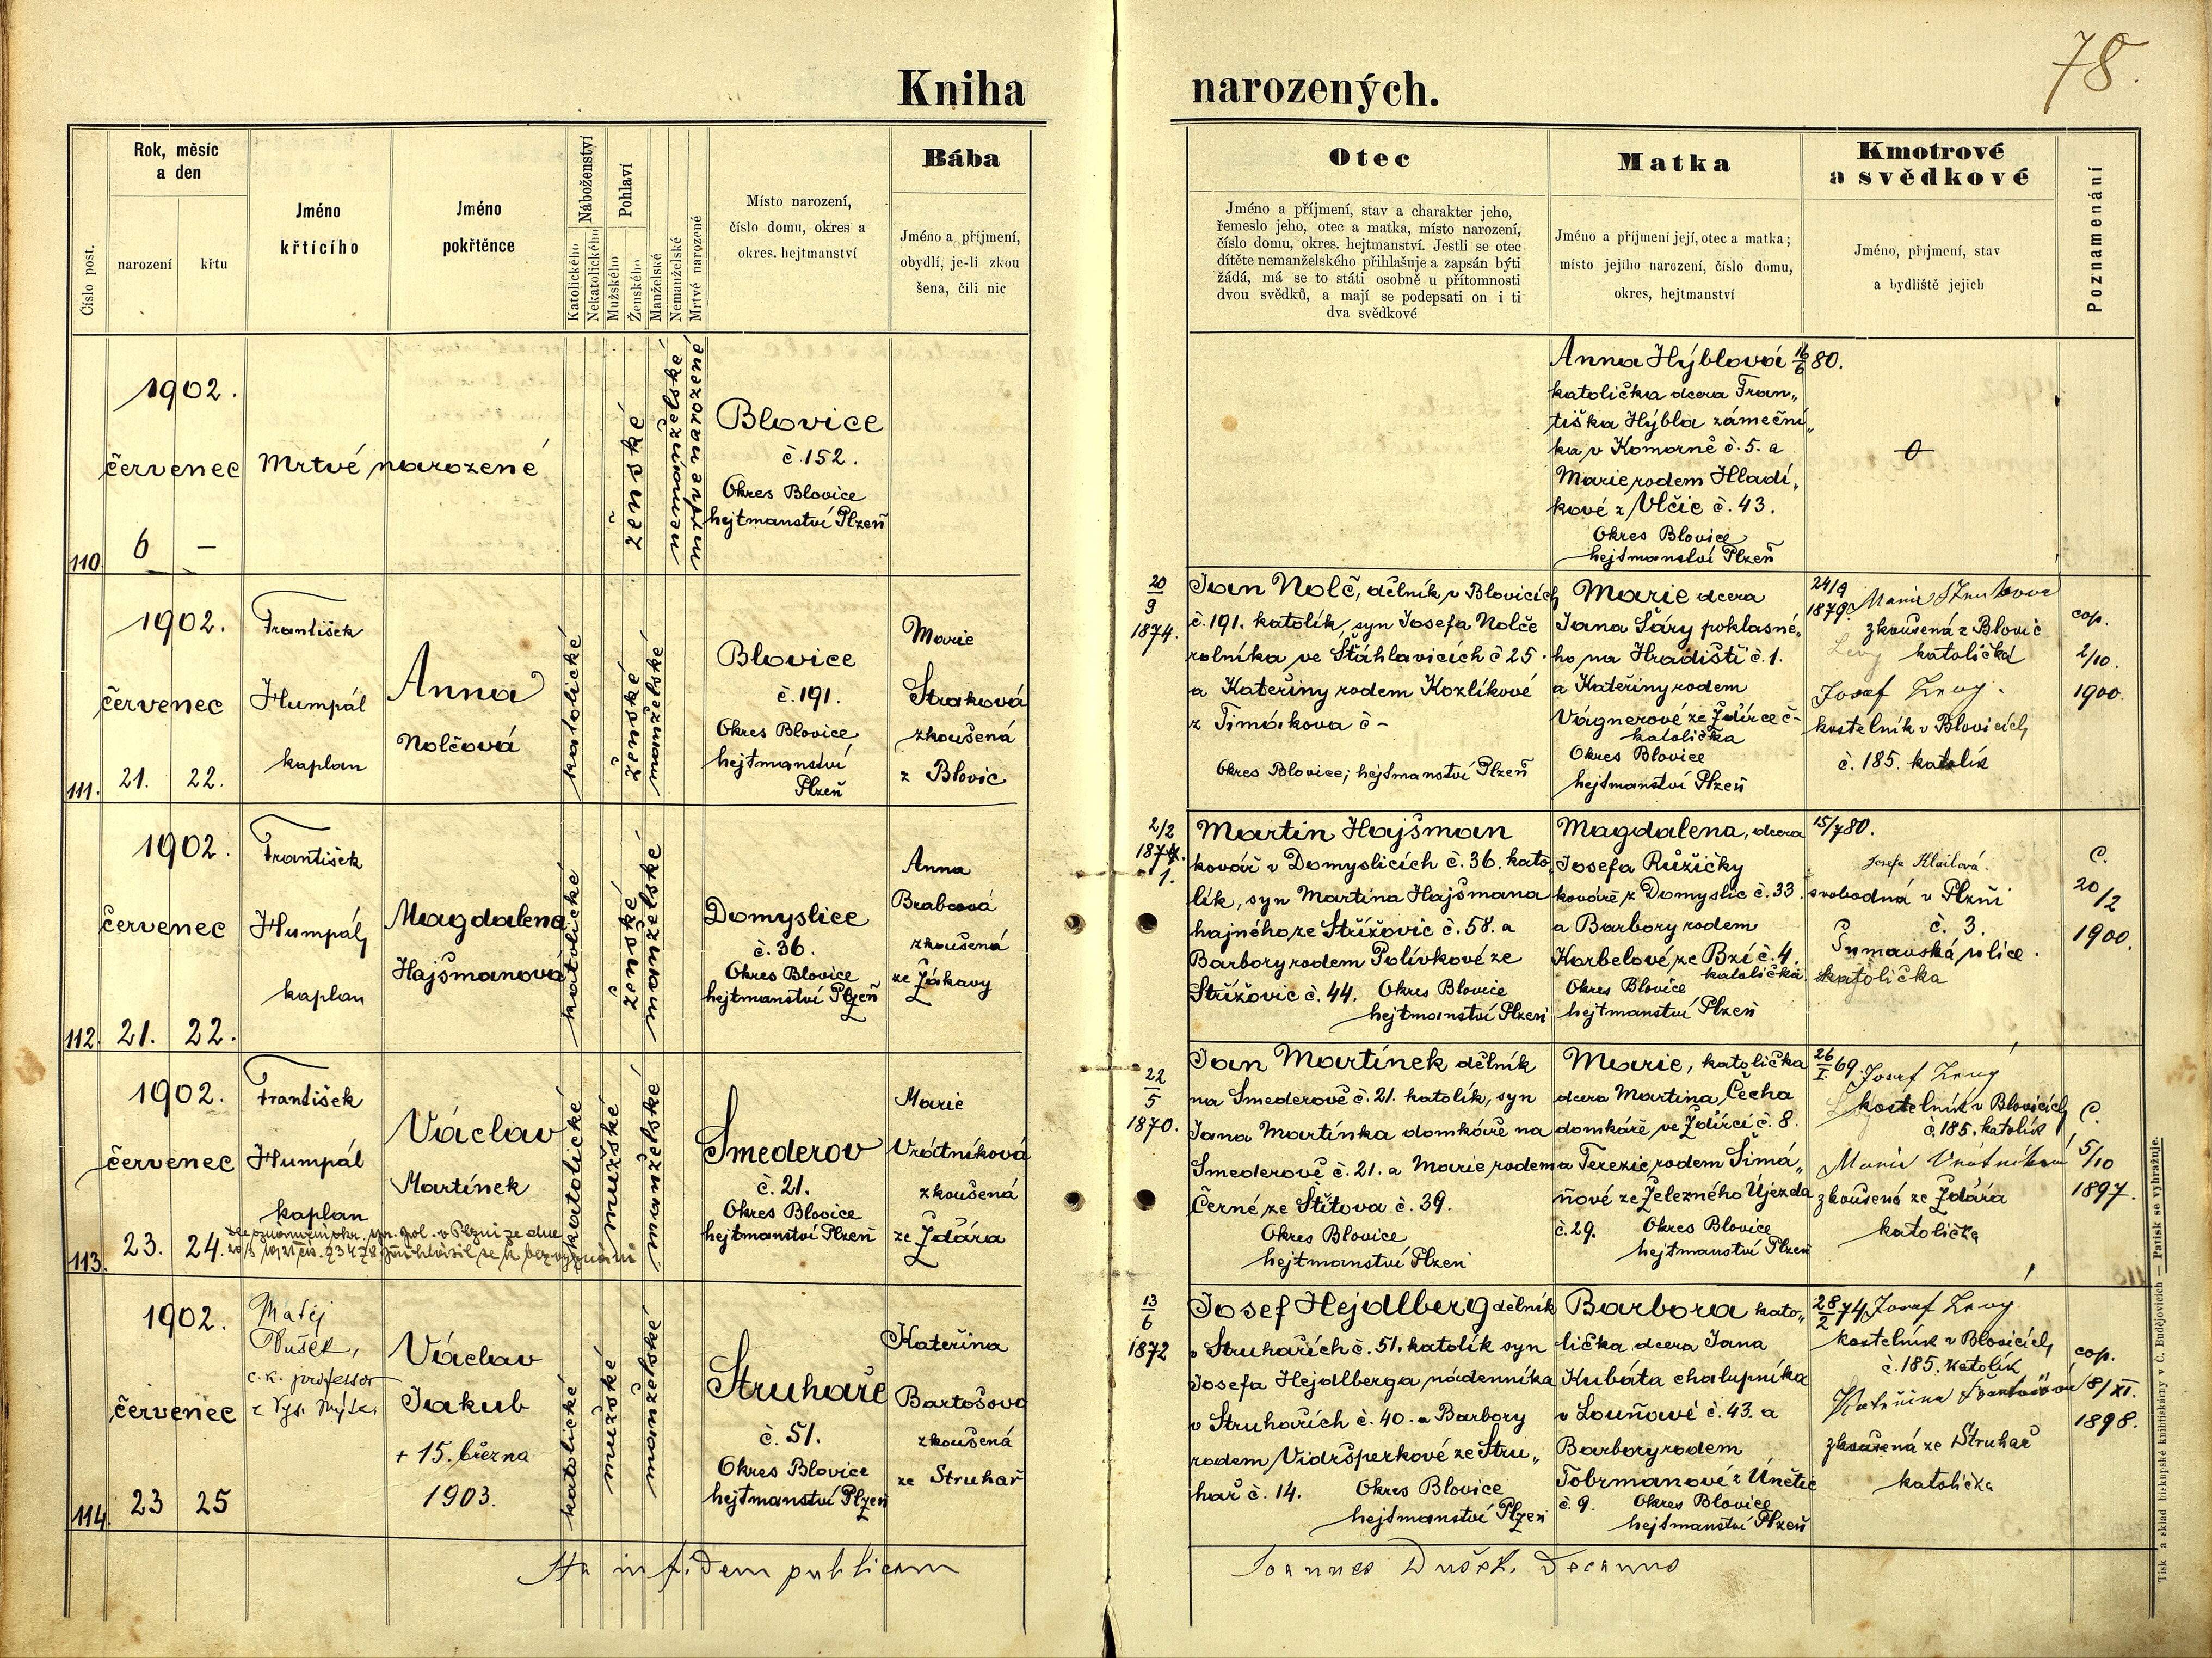 78.
Kniha narozených.
Číslo post.
Rok, měsíc
a den
narození
křtu
Jméno
křtícího
Jméno
pokřtěnce
Náboženství
Katolického
Nekatolického
Pohlaví
Mužského
Ženského
Manželské
Nemanželské
Mrtvé narozené
Místo narození,
číslo domu, okres a
okres. hejtmanství
Bába
Jméno a příjmení,
obydlí, je-li zkou
šena, čili nic
Otec
Jméno a příjmení, stav a charakter jeho,
řemeslo jeho, otec a matka, místo narození,
číslo domu, okres. hejtmanství. Jestli se otec
dítěte nemanželského přihlašuje a zapsán býti
žádá, má se to státi osobně u přítomnosti
dvou svědků, a mají se podepsati on i ti
dva svědkové
Matka
Jméno a příjmení její, otec a matka;
místo jejího narození, číslo domu,
okres, hejtmanství
Kmotrové
a svědkové
Jméno, příjmení, stav
a bydliště jejich
Poznamenání
110.
1902.
červenec
6 —
Mrtvé narozené
ženské
nemanželské
mrtvé narozené
Blovice
č. 152.
Okres Blovice
hejtmanství Plzeň
Anna Hýblová 16/6 80.
katolička dcera Fran„
tiška Hýbla zámeční„
ka v Komorně č. 5. a
Marie rodem Hladí„
kové z Vlčic č. 43.
Okres Blovice
hejtmanství Plzeň
0
111.
1902.
červenec
21. 22.
František
Humpál
kaplan
Anna
Nolčová
katolické
ženské
manželské
Blovice
č. 191.
Okres Blovice
hejtmanství
Plzeň
Marie
Straková
zkoušená
z Blovic
20/9
1874.
Jan Nolč, dělník v Blovicích
č. 191. katolík, syn Josefa Nolče
rolníka ve Šťáhlavicích č 25.
a Kateřiny rodem Kozlíkové
z Timákova č –
Okres Blovice; hejtmanství Plzeň
Marie dcera
Jana Šáry poklasné„
ho na Hradišti č. 1.
a Kateřiny rodem
Vágnerové ze Ždírce č –
katolička
Okres Blovice
hejtmanství Plzeň
24/9
1879.
Marie Straková
zkoušená z Blovic
katolička
Josef Levý.
kostelník v Blovicích
č. 185. katolík
cop.
2/10.
1900.
112.
1902.
červenec
21. 22.
František
Humpál,
kaplan
Magdalena
Hajšmanová
katolické
ženské
manželské
Domyslice
č. 36.
Okres Blovice
hejtmanství Plzeň
Anna
Brabcová
zkoušená
ze Žákavy
2/2
187
1.
Martin Hajšman
kovář v Domyslicích č. 36. kato„
lík, syn Martina Hajšmana
hajného ze Střížovic č. 58. a
Barbory rodem Polívkové ze
Střížovic č. 44. Okres Blovice
hejtmanství Plzeň
Magdalena, dcera
Josefa Růžičky
kováře z Domyslic č. 33.
a Barbory rodem
Korbelové ze Bzí č. 4.
katolička
Okres Blovice
hejtmanství Plzeň
15/7 80.
Josefa
svobodná v Plzni
č. 3.
Šumavská ulice.
katolička
C.
20/2
1900.
113.
1902.
červenec
23. 24.
František
Humpál
kaplan
Václav
Martínek
katolické
mužské
manželské
Smederov
č. 21.
Okres Blovice
hejtmanství Plzeň
Marie
Vrátníková
zkoušená
ze Ždára
22/5
1870.
Jan Martínek dělník
na Smederově č. 21. katolík, syn
Jana Martínka domkáře na
Smederově č. 21. a Marie rodem
Černé ze Štítova č. 39.
Okres Blovice
hejtmanství Plzeň
Marie, katolička
dcera Martina Čecha
domkáře, ve Ždírci č. 8.
a Terezie rodem Šimá„
ňové ze Železného Újezda
č. 29. Okres Blovice
hejtmanství Plzeň
26/I. 69.
Josef Levý
kostelník v Blovicích
č. 185. katolík
Marie Vrátníková
zkoušená ze Ždára
katolička
C.
5/10
1897.
114.
1902.
červenec
23 25
Matěj
Dušek,
c. k. professor
z Vys. Mýta.
Václav
Jakub
+ 15. března
1903.
katolické
mužské
manželské
Struhaře
č. 51.
Okres Blovice
hejtmanství Plzeň
Kateřina
Bartošová
zkoušená
ze Struhař
13/6
1872
Josef Hejdlberg dělník
v Struhařích č. 51. katolík syn
Josefa Hejdlberga nádenníka
v Struhařích č. 40. a Barbory
rodem Vidršperkové ze Stru„
hař č. 14. Okres Blovice
hejtmanství Plzeň
Barbora kato„
lička dcera Jana
Kubáta chalupníka
v Louňové č. 43. a
Barbory rodem
Tobrmanové z Únětic
č. 9. Okres Blovice
hejtmanství Plzeň
28/2 74
Josef Levý
kostelník v Blovicích
č. 185. katolík
Kateřina
zkoušená ze Struhař
katolička
cop.
8/XI.
1898.
Ita in fidem publicam
Joannes Dušek, Decanus
Tisk a sklad biskupské knihtiskárny v Č. Budějovicích — Patisk se vyhražuje.